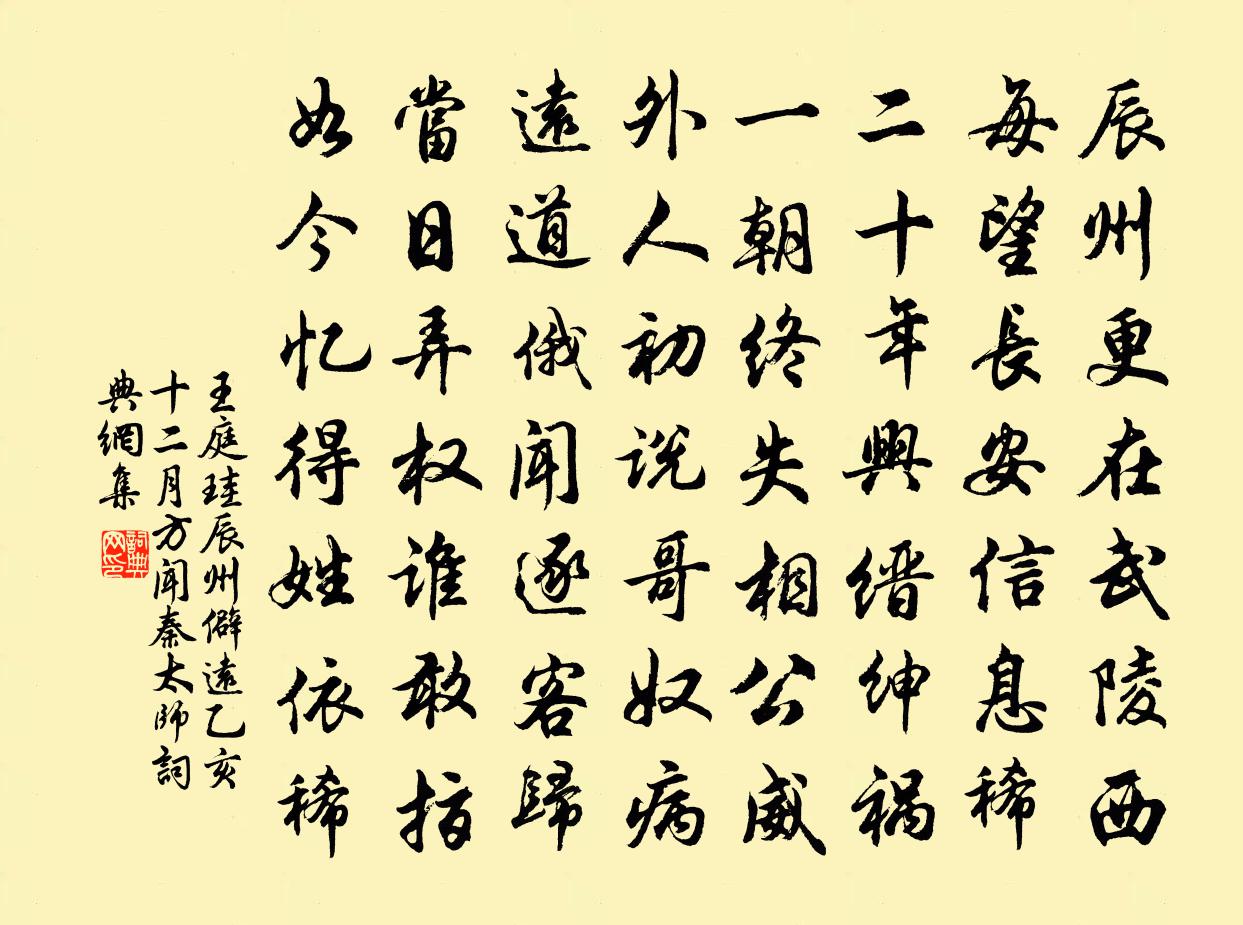 辰州更在武陵西
每望長安信息稀
二十年興缙紳祸
一朝终失相公威
外人初说哥奴病
遠道俄闻逐客歸
當日弄权谁敢指
如今忆得姓依稀
王庭珪辰州僻遠乙亥
十二月方闻秦太師詞
典網集
詞典
网印